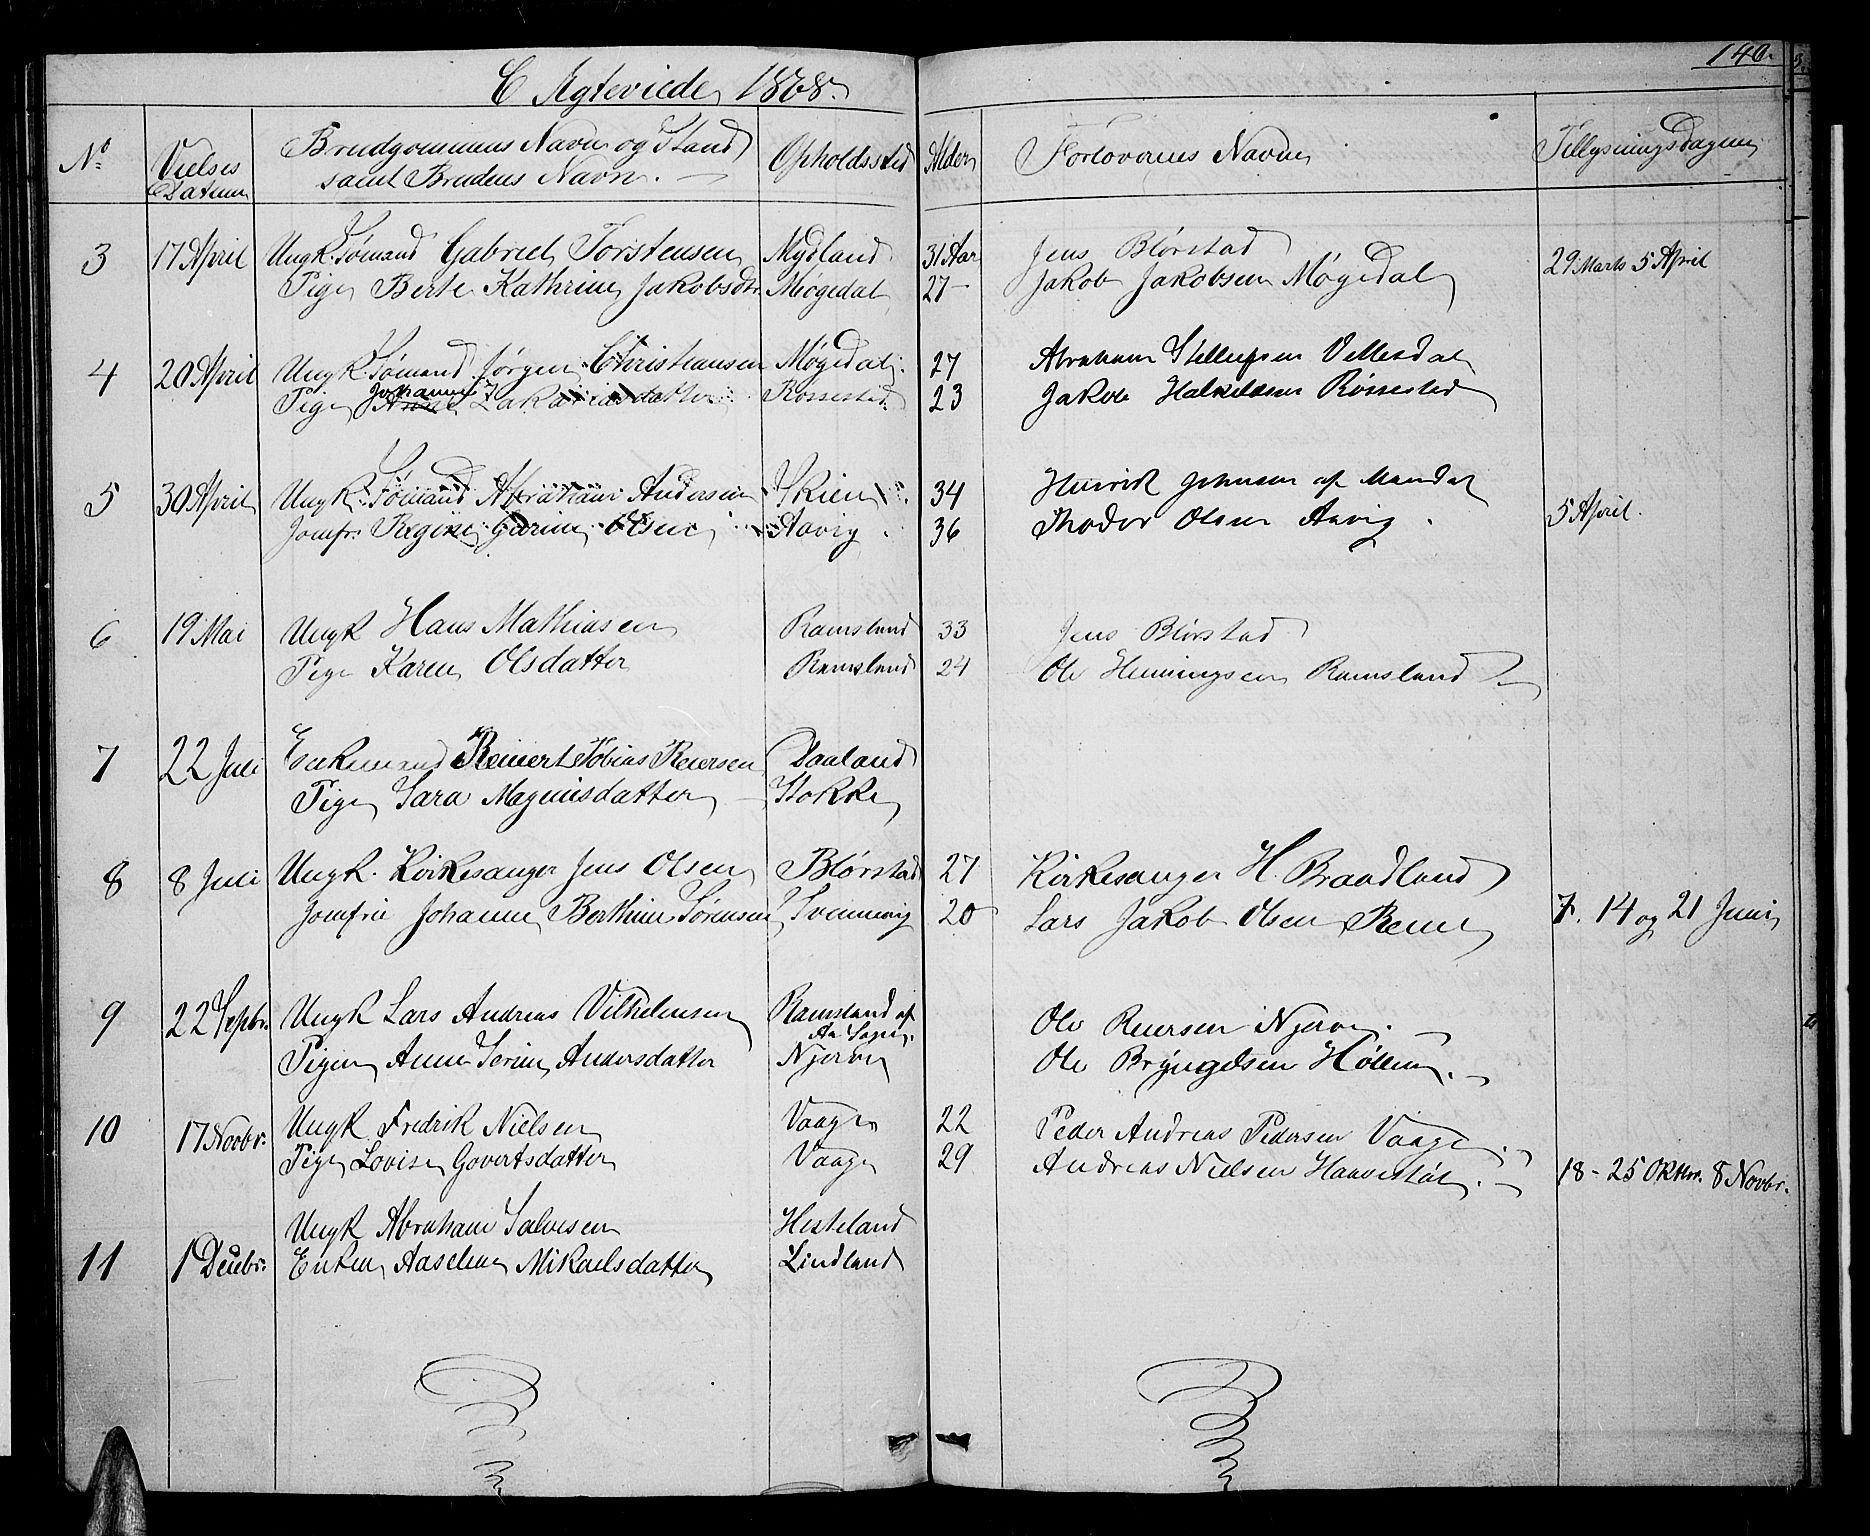 C Ægteviede 1868.
140.
No.
Vielses Datum
Brudgommens Navn og Stand samt Brudens Navn.
Opholdssted
Alder
Forlovernes Navne
Tillysningsdagene
3 17 April Ungk. Sømand Gabriel Torstensen Mydland 31 Aar Jens Blørstad 29 Marts 5 April
Pige Berte Kathrine Jakobsdtr. Møgedal 27 - Jakob Jakobsen Møgedal
4 20 April Ungk. Sømand Jørgen Christiansen Møgedal. 27 Abraham
Pige Johanne Zakariasdatter Røssestad 23 Jakob Røssestad
5 30 April Ungk. Sømand Abraham Andersen Skien 34 Henrik Johnsen af Mandal
Jomfr. Regine Gurine Olsen Aavig. 36 Theodor Olsen Aavig. 5 April.
6 19 Mai Ungk Hans Mathiasen Ramsland 33 Jens Blørstad
Pige Karen Olsdatter Ramsland 24 Ole Henningsen Ramsland
7 22 Juli Enkemand Reinert Tobias Reiersen Daaland
Pige Sara Magnusdatter Stokke
8 8 Juli Ungk. Kirkesanger Jens Olsen Blørstad 27 Kirkesanger H. Braadland
Jomfru Johanne Berthine Sørensen Svennevig 20 Lars Jakob Olsen Reme 7. 14 og 21 Juni
9 22 Septbr. Ungk Lars Andreas Vilhelmsen Ramsland af Aa Sogn. Ole Reiersen Njerve.
Pigen Anne Serine Andersdatter Njerve Ole Bryngelsen Høllen.
10 17 Novbr. Ungk Fredrik Nielsen Vaage 22 Peder Andreas Pedersen Vaage.
Pige Lovise Govertsdatter Vaage 29 Andreas Nielsen 18 - 25 Oktbr. 8 Novbr.
Ungk Abraham Salvesen Hesteland
11 1 Decbr. Enken Aaselene Mikaelsdatter Lindland